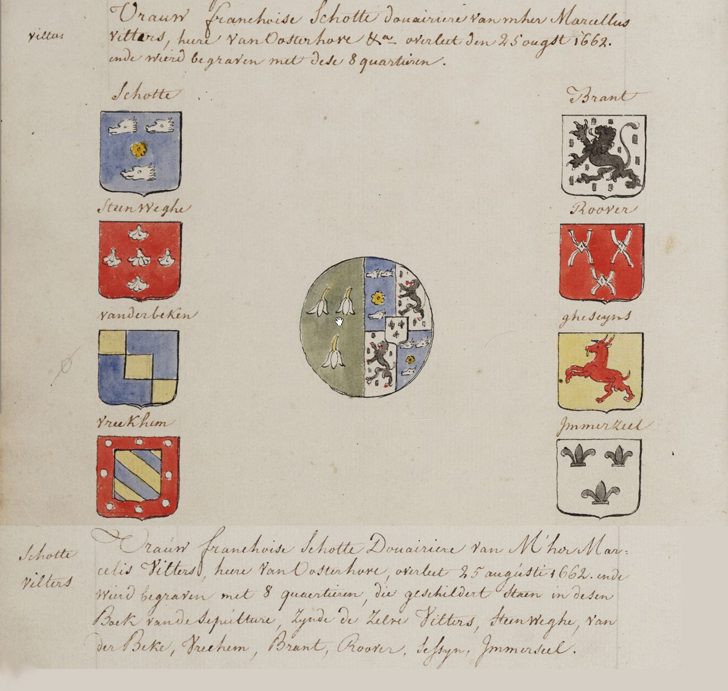 Vrauw franchoise Schotte douairiere van mher Marcellus
villers
Vitters, here van Oosterhove &a overleet den 25 ougst 1662.
ende wierd begraven met dese 8 quartieren.
Schotte
Brant
SteenWeghe
Roover
vanderbeken
gheseyns
Vreekhem
Jmmerzeel
Vrauw franchoise Schotte Douairiere van M'her Mar=
Schotte
celis Vitters, heere van Oosterhove, overleet 25 augusti 1662. ende
Vitters
wierd begraven met 8 quaertieren, die geschildert staen in desen
Boek vande sepulture, Zynde de Zelve Vitters, SteenWeghe, van
der Beke, Vreehem, Brant, Roover, Sessyn, Jmmerseel.